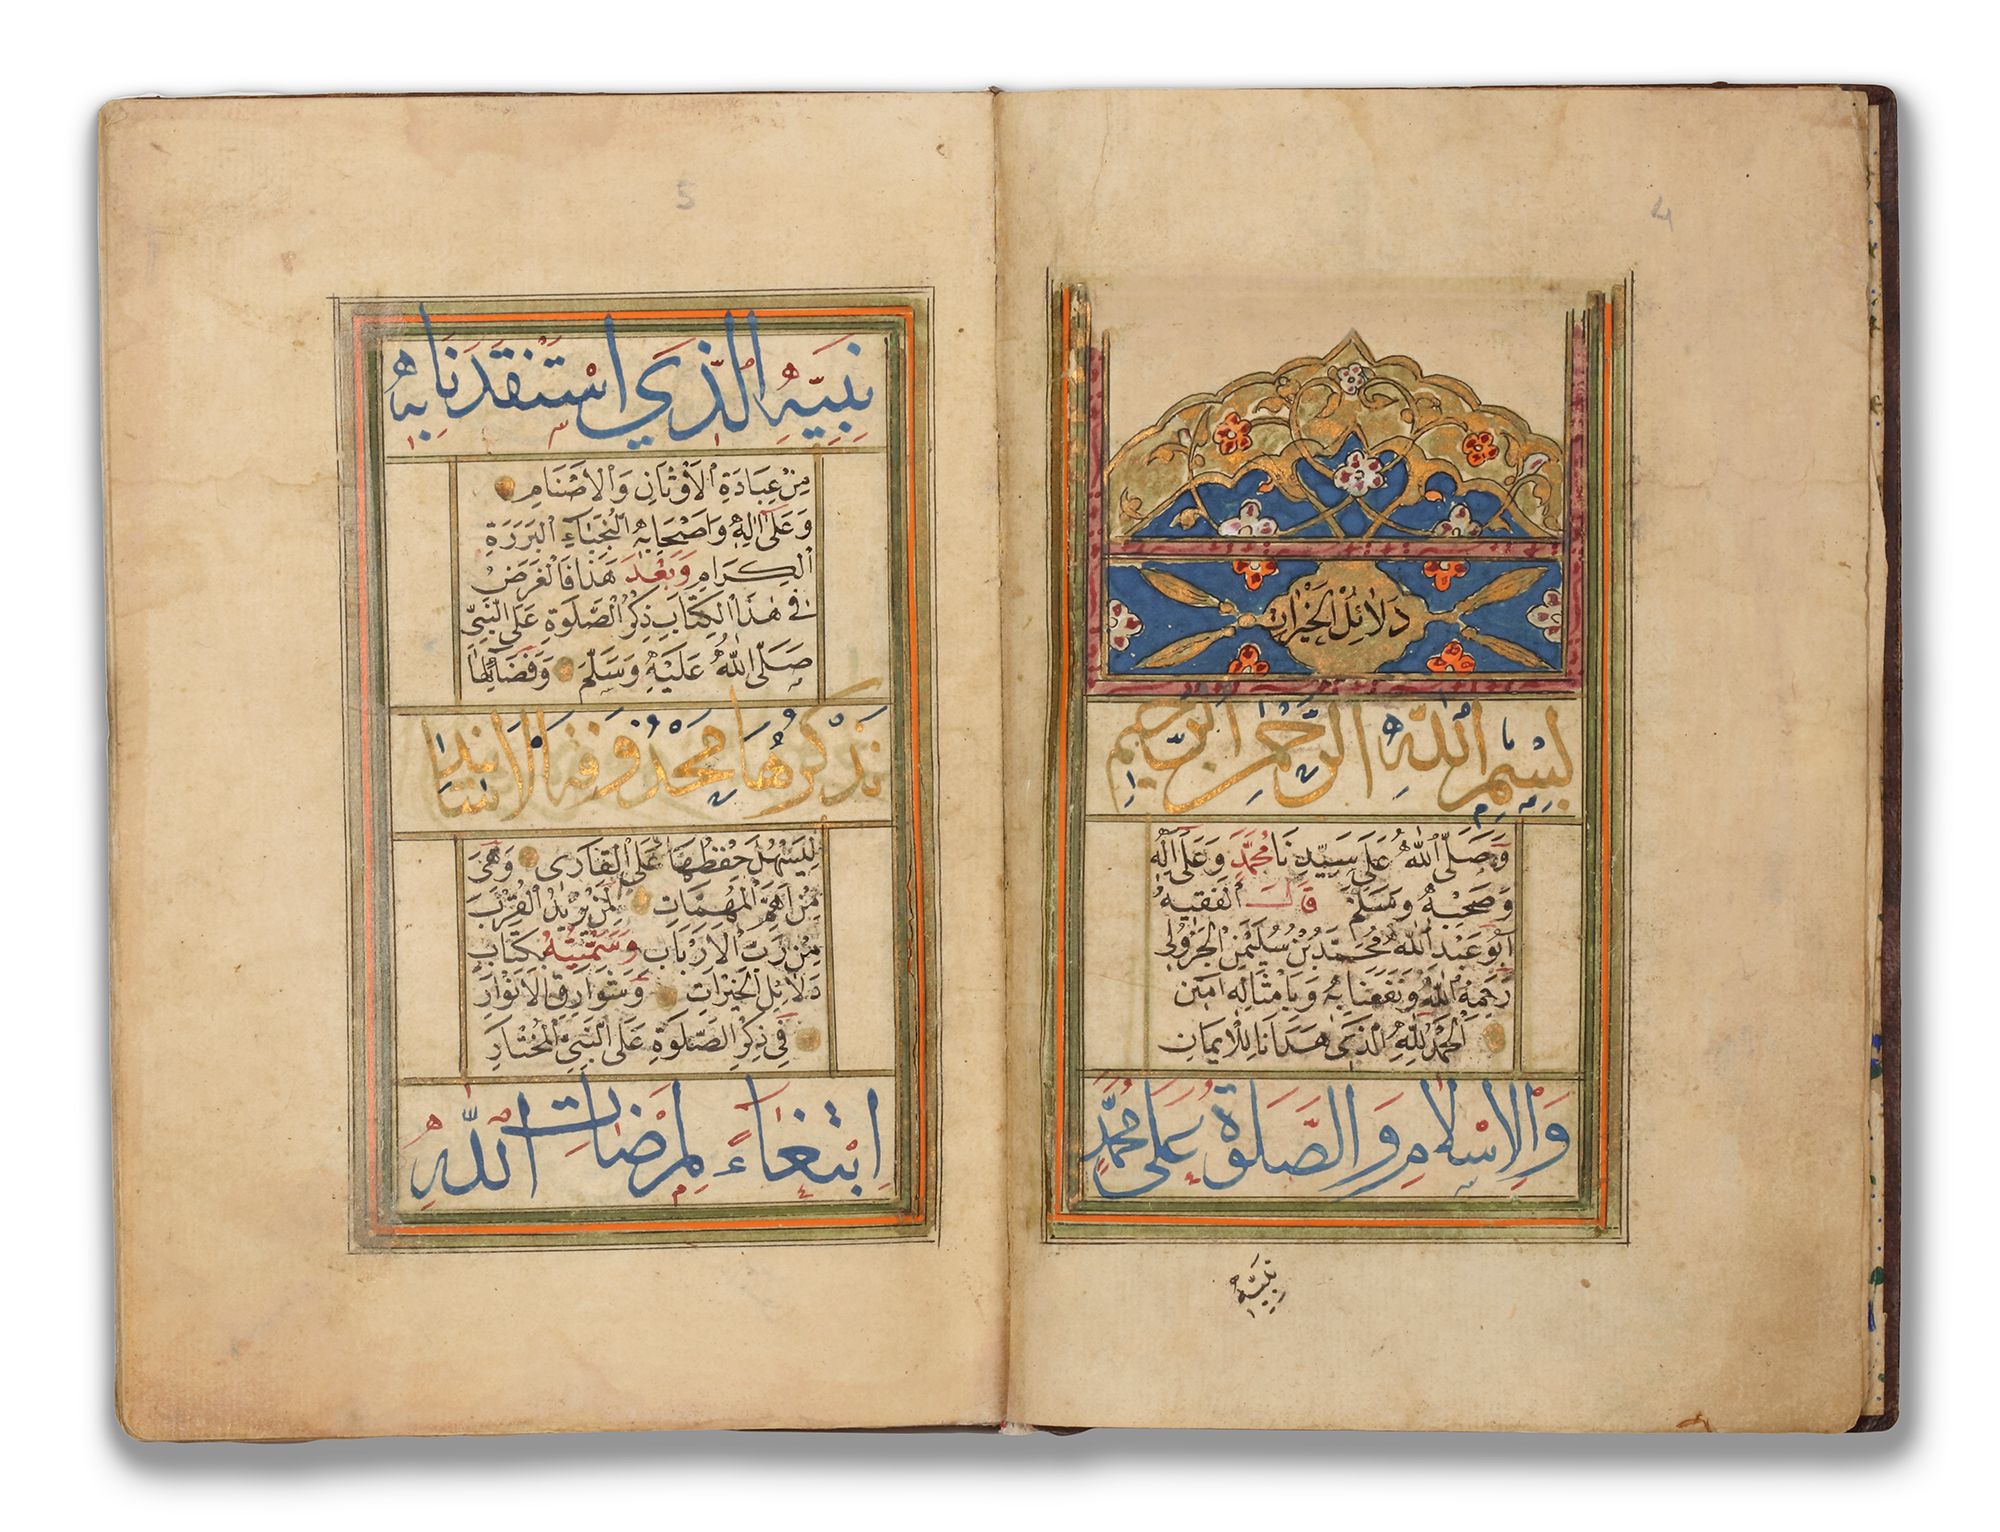 4
دَلَائِلُ الْخَيْرَاتِ
بِسْمِ اللّٰهِ الرَّحْمٰنِ الرَّحِيمِ
وَصَلَّى اللّٰهُ عَلَى سَيِّدِنَا مُحَمَّدٍ وَعَلَى اٰلِهِ
وَصَحْبِهِ وَسَلَّمَ قَالَ الْفَقِيهُ
اَبُو عَبْدِ اللّٰهِ مُحَمَّدُ بْنُ سُلَيْمٰنَ الْجَزُولِي
رَحِمَهُ اللّٰهُ وَنَفَعَنَا بِهِ وَبِاَمْثَالِهِ اٰمِينَ
اَلْحَمْدُ لِلّٰهِ الَّذِي هَدَانَا لِلْاِيمَانِ
وَالْاِسْلَامِ وَالصَّلٰوةُ عَلَى مُحَمَّدٍ
نَبِيِّهِ
5
نَبِيِّهِ الَّذِي اسْتَنْقَذَنَا بِهِ
مِنْ عِبَادَةِ الْاَوْثَانِ وَالْاَصْنَامِ
وَعَلَى اٰلِهِ وَاَصْحَابِهِ النُّجَبَاءِ الْبَرَرَةِ
الْكِرَامِ وَبَعْدَ هٰذَا فَالْغَرَضُ
فِي هٰذَا الْكِتَابِ ذِكْرُ الصَّلٰوةِ عَلَى النَّبِيِّ
صَلَّى اللّٰهُ عَلَيْهِ وَسَلَّمَ وَفَضَائِلُهَا
نَذْكُرُهَا مَحْذُوفَةَ الْاَسَانِيدِ
لِيَسْهُلَ حِفْظُهَا عَلَى الْقَارِى وَهِيَ
مِنْ اَهَمِّ الْمُهِمَّاتِ لِمَنْ يُرِيدُ الْقُرْبَ
مِنْ رَبِّ الْاَرْبَابِ وَسَمَّيْتُهُ بِكِتَابِ
دَلَائِلِ الْخَيْرَاتِ وَشَوَارِقِ الْاَنْوَارِ
فِي ذِكْرِ الصَّلٰوةِ عَلَى النَّبِيِّ الْمُخْتَارِ
اِبْتِغَاءً لِمَرْضَاتِ اللّٰهِ